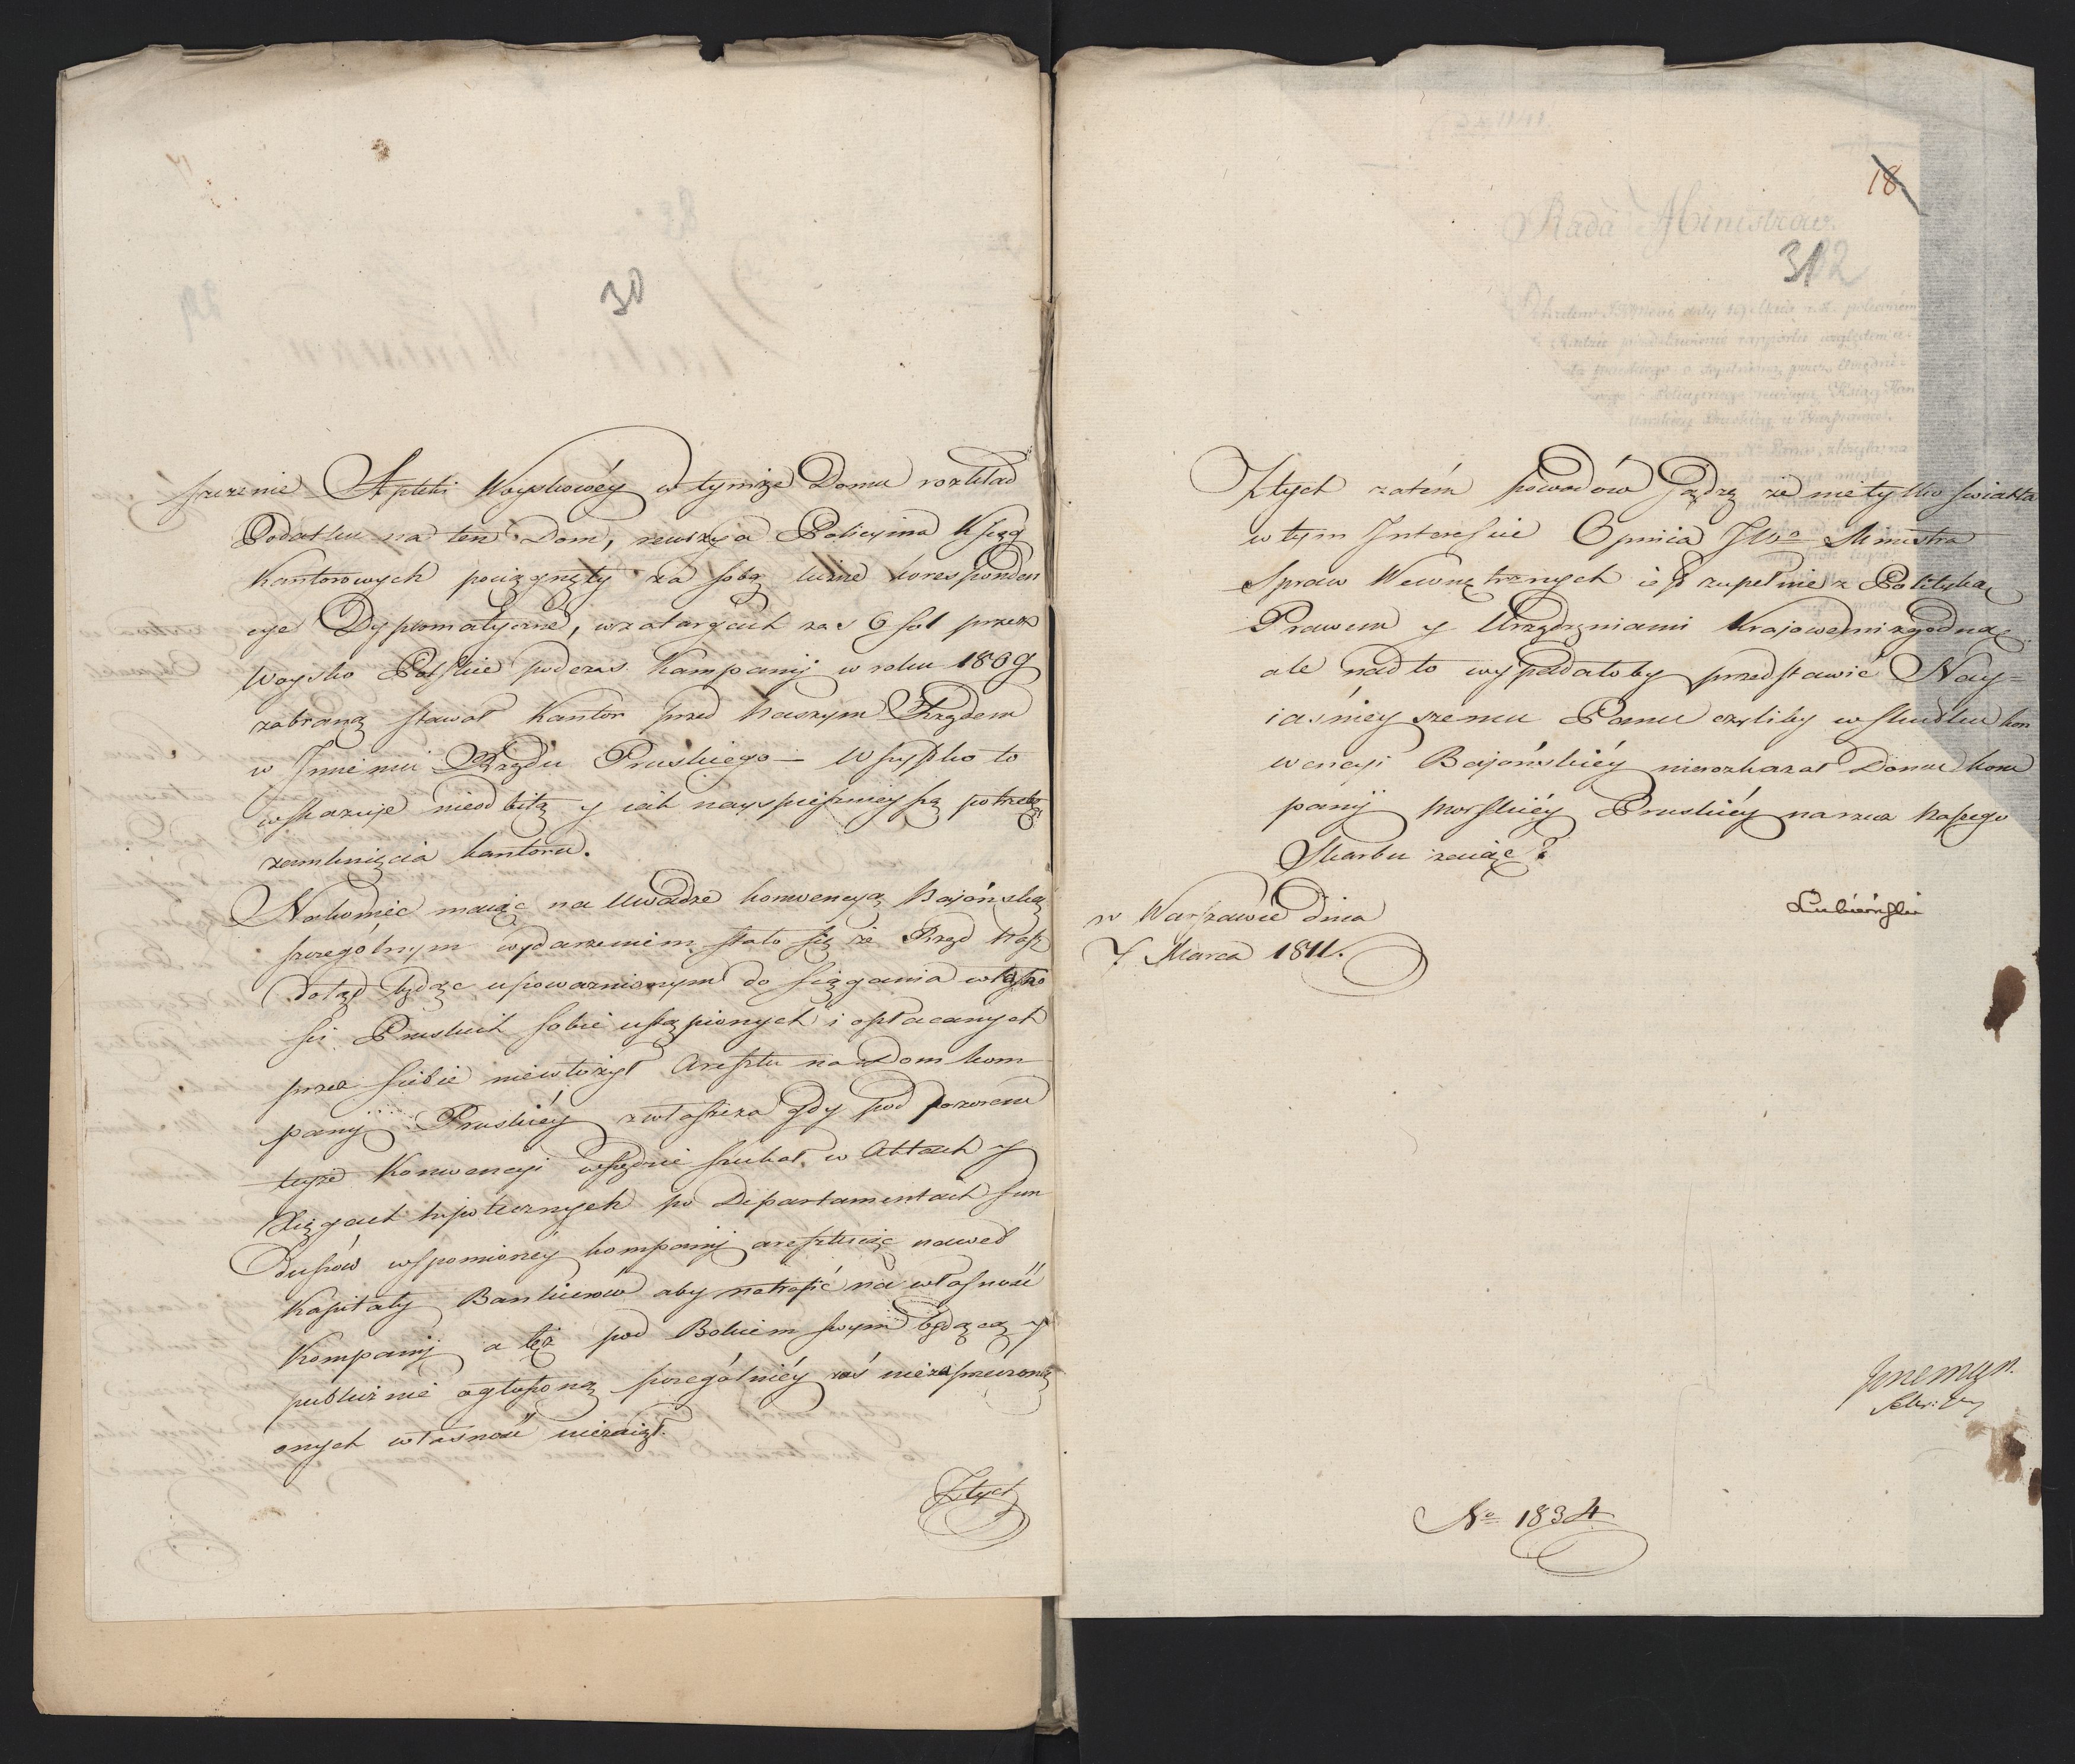 30
szczenie Apteki Woyskowéy w tymże Domu rozkład
Podatku na ten Dom, rewizya Policyina Xsiąg
Kantorowych pociągnęły za sobą liczne korresponden
cye Dyplomatyczne, w zatargach zaś o sol przez
Woysko Polskie podczas Kampanij w roku 1809
zabraną stawał Kantor przed Naszym Rządem
w Imieniu Rządu Pruskiego — Wszystko to
wskazuje nieodbitą y iak nayspieszniejszą potrzebę
zamknięcia kantoru.
Nakoniec maiąc na Uwadze konwencyą Bajońską
szczególnym wydarzeniem stało się że Rząd Nasz
dotąd będąc upoważnionym do sięgania własno
ści Pruskich sobie ustąpionych i opłacanych
przez siebie niewłożył Aresztu na Dom kom
panij Pruskiéy zwłaszcza gdy pod pozorem
teyże Konwencyi wszędzie szukał w Aktach y
Xięgach hipotecznych po Departamentach fun
duszów wspomnionéy kompanij aresztuiąc nawet
Kapitały Bankierów aby natrafić na własność
Kompanij a tę pod Bokiem swym będącą y
publicznie ogłoszoną szczególniéy zaś niezaprzeczoną
onych własność niezaiął.
Z tych
18
312
Rada Ministrów.
Z tych zatém powodów sądzę że nietylko światła
w tym Interessie Opinia JWo Ministra
Spraw Wewnętrznych iest zupełnie z Polityką
Prawem y Urządzeniami Krajowemi zgodną
ale nadto wypadałoby przedstawić Nay=
iaśnieyszemu Panu czyliby w skutku kon
wencyi Bajońskiéy nierozkazał Domu kom
panij Morskiéy Pruskiéy na rzecz Naszego
Skarbu zaiąć?
Łubieński
w Warszawie dnia
7 Marca 1811.
No 1834